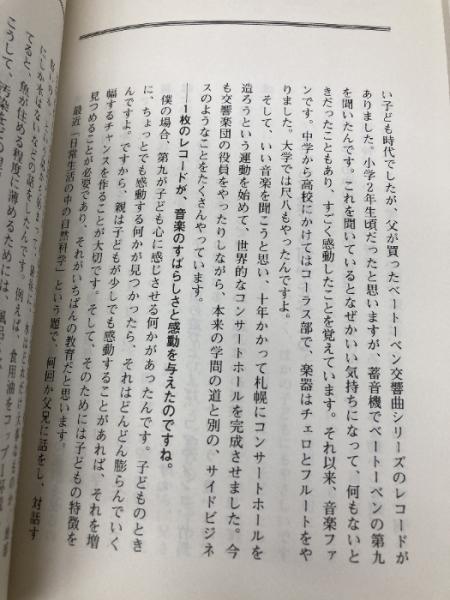 い子ども時代でしたが、父が買ったベートーベン交響曲シリーズのレコードが
ありました。小学2年生頃だったと思いますが、蓄音機でベートーベンの第九
を聞いたんです。これを聞いているとなぜかいい気持ちになって、何もないと
きだったこともあり、すごく感動したことを覚えています。それ以来、音楽ファ
ンです。中学から高校にかけてはコーラス部で、楽器はチェロとフルートをや
りました。大学では尺八もやったんですよ。
そして、いい音楽を聞こうと思い、十年かかって札幌にコンサートホールを
造ろうという運動を始めて、世界的なコンサートホールを完成させました。今
も交響楽団の役員をやったりしながら、本来の学問の道と別の、サイドビジネ
スのようなことをたくさんやっています。
——1枚のレコードが、音楽のすばらしさと感動を与えたのですね。
僕の場合、第九が子ども心に感じさせる何かがあったんです。子どものとき
に、ちょっとでも感動する何かが見つかったら、それはどんどん膨らんでいく
んですよ。ですから、親は子どもが少しでも感動することがあれば、それを増
幅するチャンスを作ることが大切です。そして、そのためには子どもの特徴を
見つめることが必要であり、それがいちばんの教育だと思います。
最近「日常生活の中の自然科学」という題で、何回か父兄に話をし、対話す
てると、魚が住める程度に薄めるためには、風呂
こうして、汚染